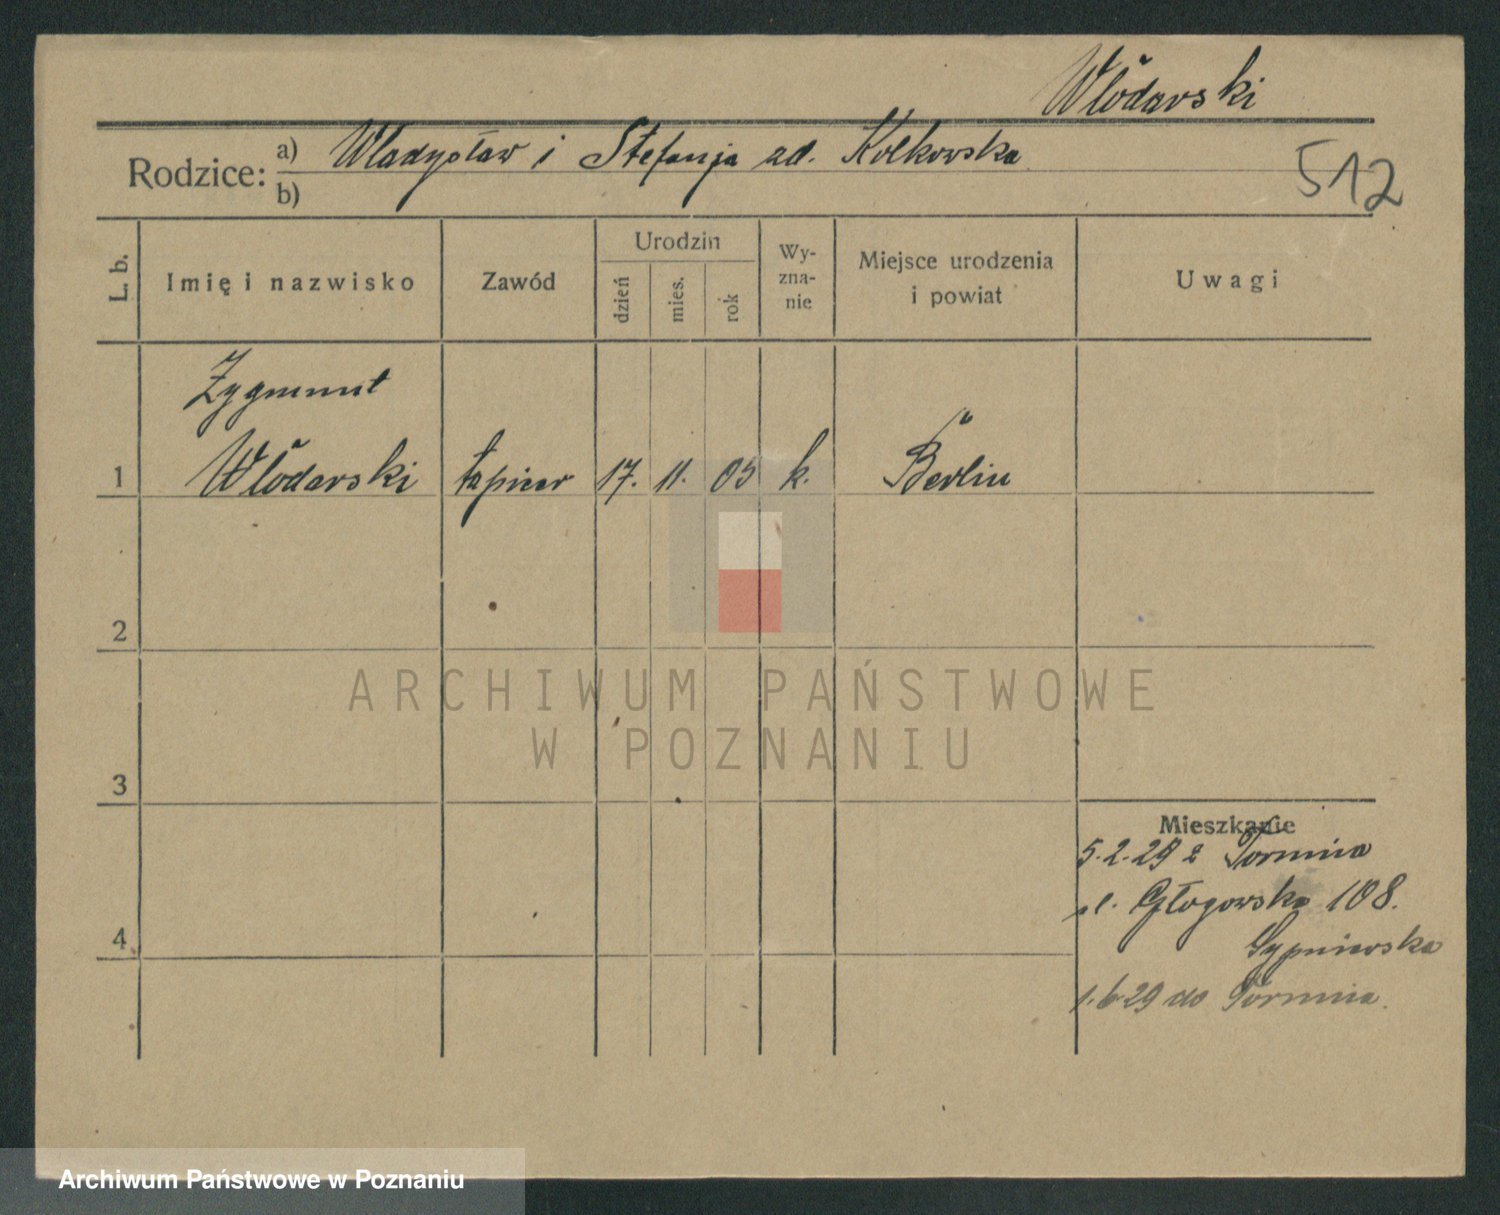 Włodarski
Rodzice: a) Władysław i Stefanja zd. Kołkowska
b)
512
L. b. Imię i nazwisko Zawód Urodzin dzień mies. rok Wy-zna-nie Miejsce urodzenia i powiat Uwagi
Zygmunt
1 Włodarski tapicer 17. 11. 05 k. Berlin
2
ARCHIWUM PAŃSTWOWE
W POZNANIU
3
Mieszkanie
5.2.29 z Torunia
ul. Głogowska 108.
4
Sypniewska
1.6 29 do Torunia.
Archiwum Państwowe w Poznaniu